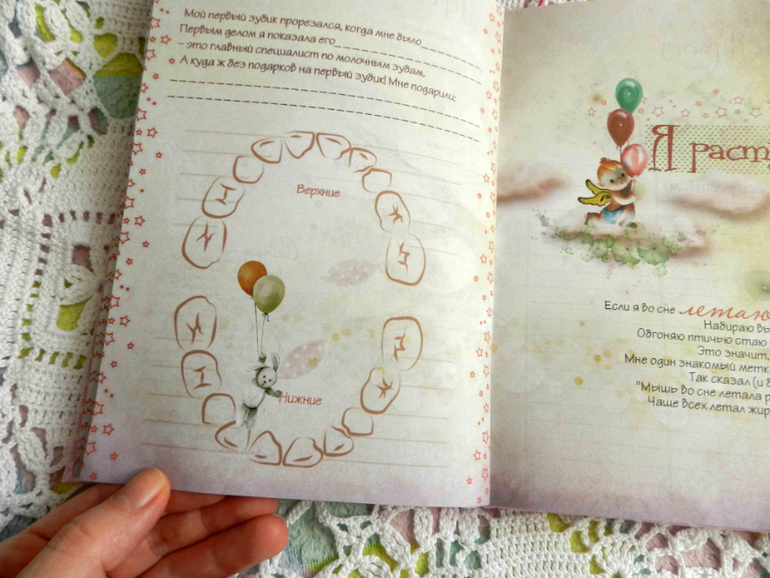 Мой первый зубик прорезался, когда мне было__________
Первым делом я показала его____________________
– это главный специалист по молочным зубам.
А куда ж без подарков на первый зубик! Мне подарили:
Верхние
Нижние
Я раст
Если я во сне летаю
Набираю вы
Обгоняю птичью стаю
Это значит,
Мне один знакомый метк
Так сказал (и
"Мышь во сне летала р
Чаще всех летал жир